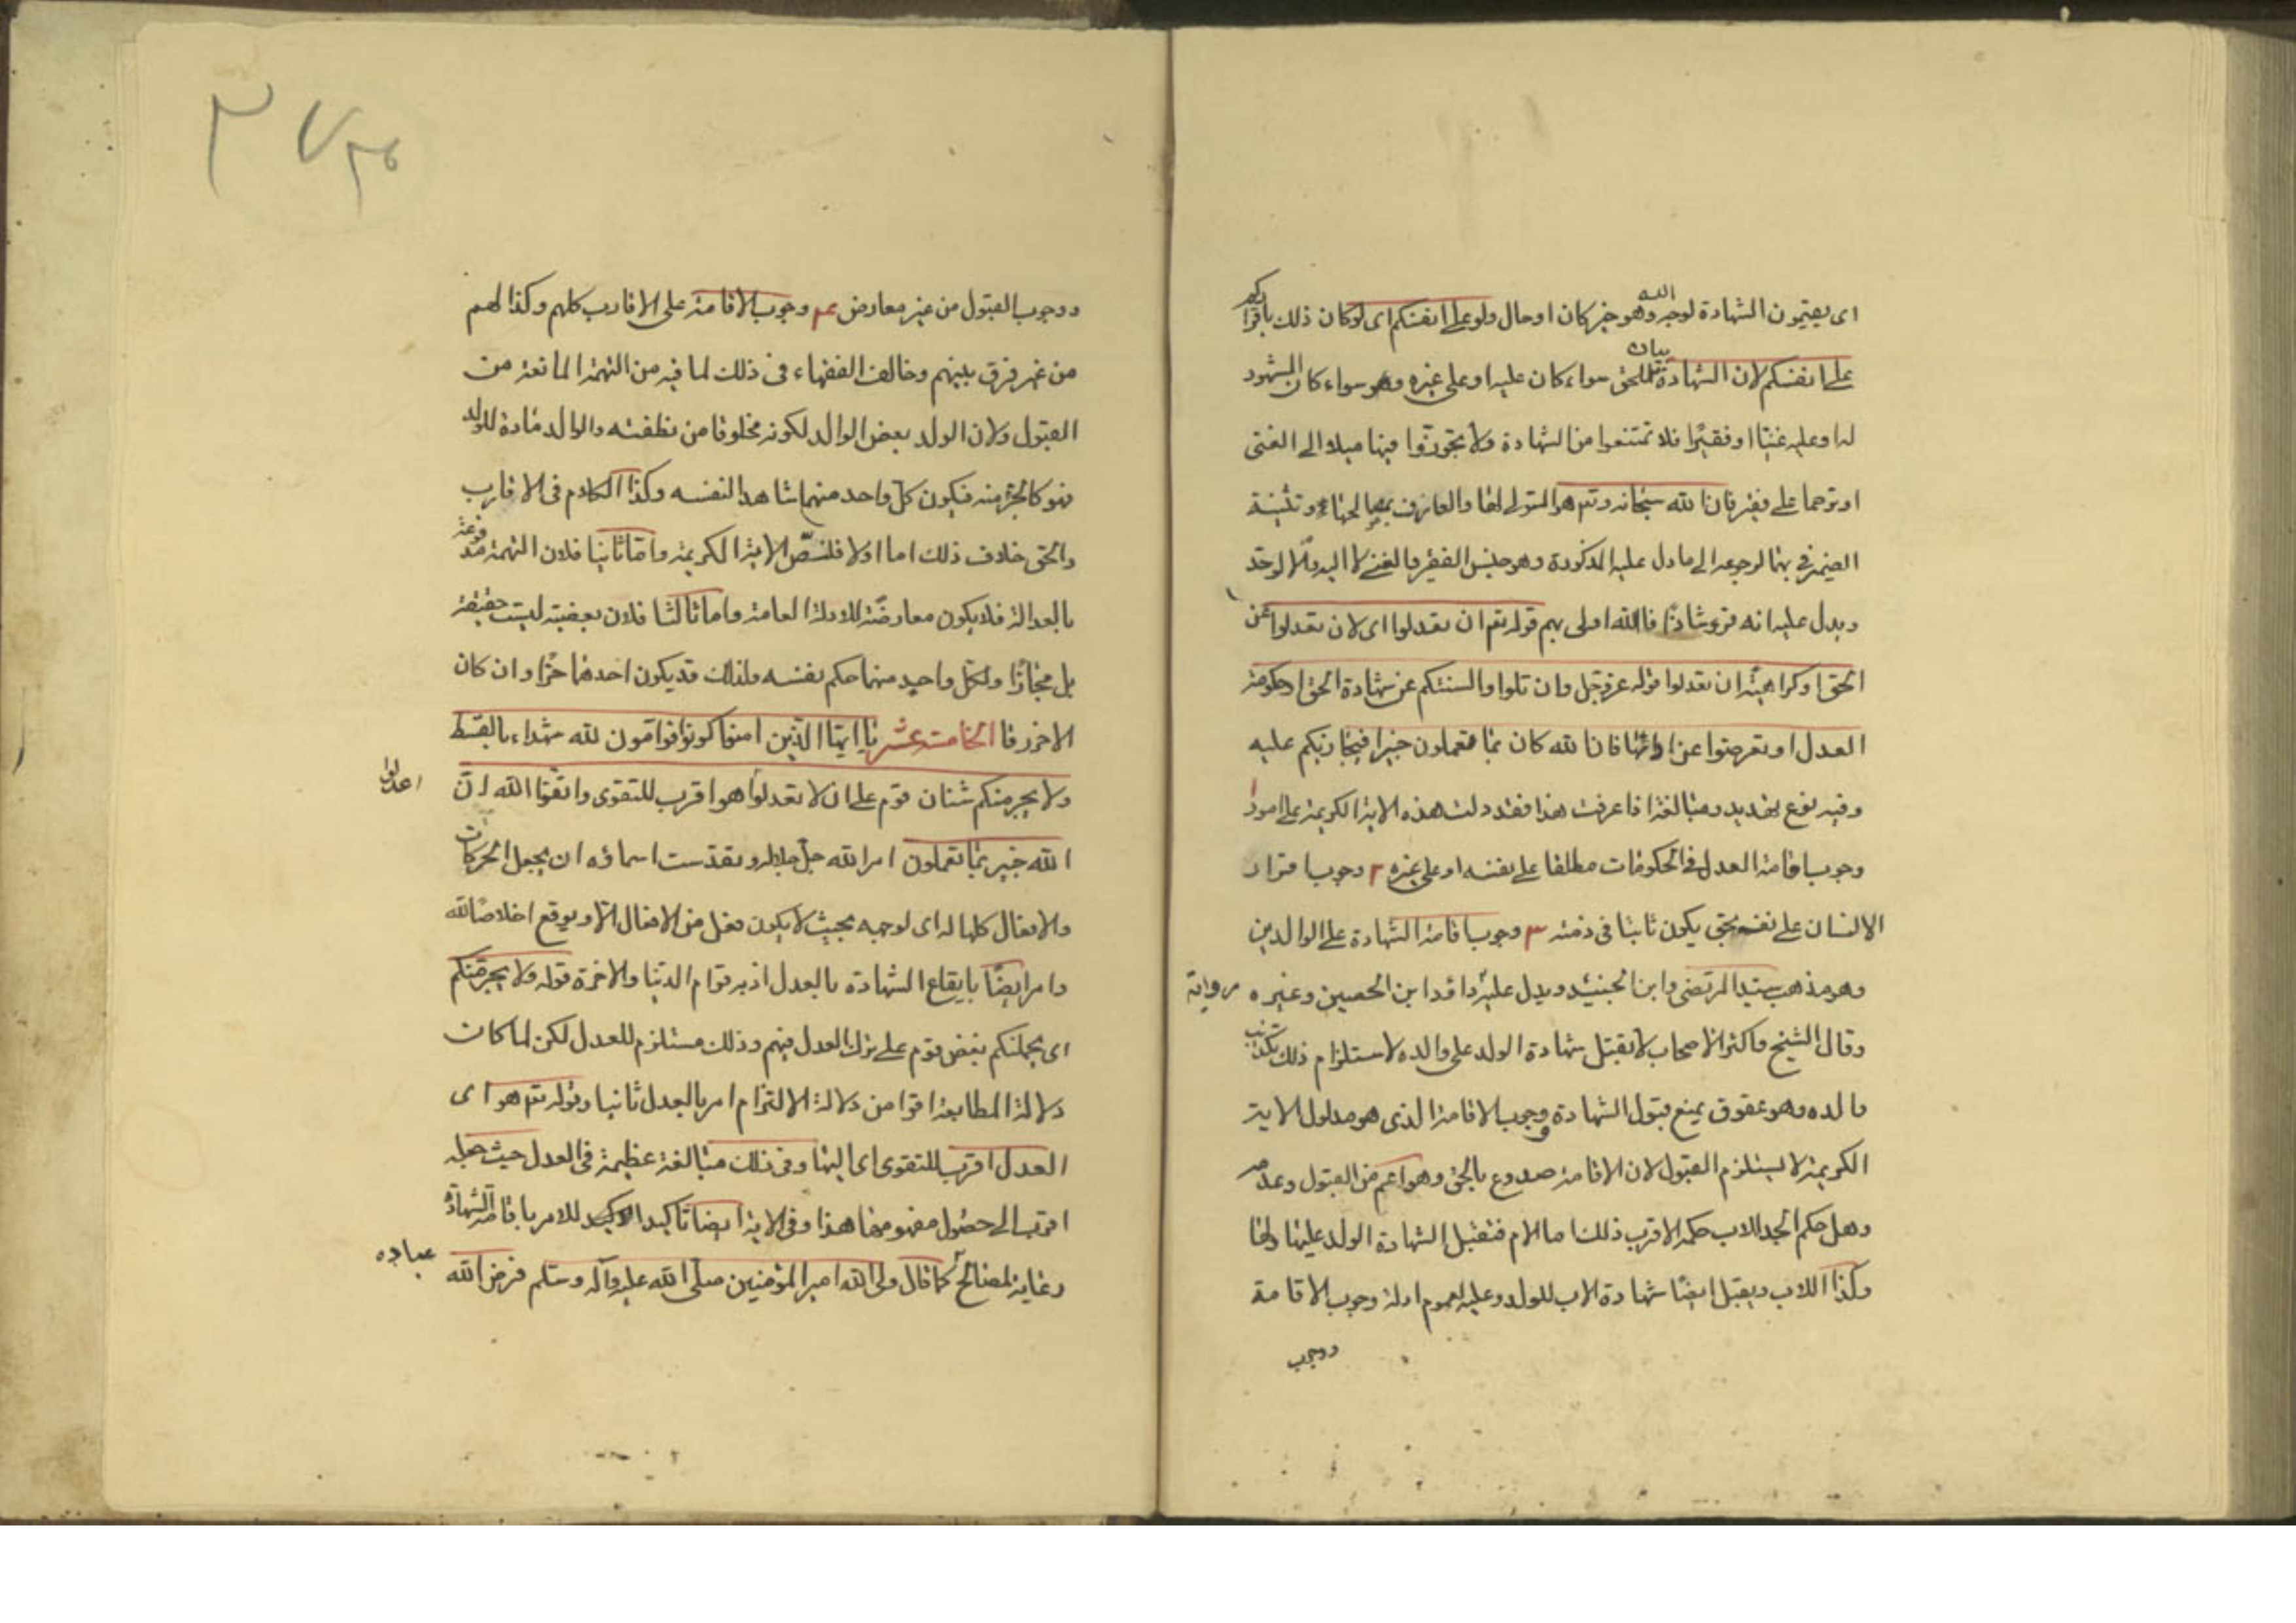 اى يقيمون الشهادة لوجه الله وهو خبر كان او حال ولو على انفسكم اى لو كان ذلك باقراركم
على انفسكم لان الشهادة بيان للحق سواء كان عليه او على غيره وهو سواء كان المشهود
له او عليه غنيّا او فقيرًا فلا تمتنعوا من الشهادة ولا تجوّزوا فيها ميلا الى الغنى
او ترحما على فقير فان الله سبحانه وتع هو المتولى لها والعارف بمصالحهما وتثنية
الضمير فى بهما لرجوعه الى ما دل عليه المذكورة وهو جنس الفقير والغنى لا اليه والا لوحّد
ويدل عليه انه قرء شاذّا فالله اولى بهم قوله تع ان تعدلوا اى لان تعدلوا عن
الحق او كراهيّة ان تعدلوا قوله عز وجل وان تلووا السنتكم عن شهادة الحق او حكومة
العدل او تعرضوا عن ادائها فان الله كان بما تعملون خبيرا فيجازيكم عليه
وفيه نوع تهديد ومبالغة اذا عرفت هذا فقد دلت هذه الاية الكريمة على امور ا
وجوب اقامة العدل فى الحكومات مطلقا على نفسه او على غيره ٢ وجوب اقرار
الانسان على نفسه بحق يكون ثابتا فى ذمته ٣ وجوب اقامة الشهادة على الوالدين
وهو مذهب سيد المرتضى وابن الجنيد ويدل عليه رواية داود ابن الحصين وغيره
وقال الشيخ واكثر الاصحاب لا يقبل شهادة الولد على والده لاستلزام ذلك تكذيب
والده وهو عقوق يمنع قبول الشهادة ووجوب الاقامة الذى هو مدلول الاية
الكريمة لا يستلزم القبول لان الاقامة صدوع بالحق وهو اعم من القبول وعدمه
وهل حكم الجد للاب حكم الاقرب ذلك اما الام فتقبل الشهادة الولد عليها ولها
وكذا اللاب ويقبل ايضًا شهادة الاب للولد وعليه لعموم ادلة وجوب الاقامة
ووجوب
ووجوب القبول من غير معارض ٤ وجوب الاقامة على الاقارب كلهم وكذا لهم
من غير فرق بينهم وخالف الفقهاء فى ذلك لما فيه من التهمة المانعة من
القبول ولان الولد بعض الوالد لكونه مخلوقا من نطفته والوالد مادة للولد
فهو كالجزء منه فيكون كلّ واحد منهما شاهدا لنفسه وكذا الكلام فى الاقارب
والحق خلاف ذلك اما اولا فلنصّ الاية الكريمة واما ثانيا فلان التهمة مدفوعة
بالعدالة فلا يكون معارضة للادلة العامة واما ثالثا فلان بعضيته ليست حقيقة
بل مجازًا ولكل واحد منهما حكم نفسه ولذلك قد يكون احدهما حرّا وان كان
الاخر رقا الخامسة عشر يا ايها الذين امنوا كونوا قوامون لله شهداء بالقسط
ولا يجرمنكم شنئان قوم على ان لا تعدلوا اعدلوا هو اقرب للتقوى واتقوا الله انّ
الله خبير بما تعملون امر الله جلّ جلاله وتقدّست اسمائه ان يجعل الحركات
والافعال كلها له اى لوجهه بحيث لا يكون فعل من الافعال الا ويوقع اخلاصًا لله
وامر ايضًا بايقاع الشهادة بالعدل اذ به قوام الدنيا والاخرة قوله ولا يجرمنكم
اى يحملنكم بغض قوم على ترك العدل فيهم وذلك مستلزم للعدل لكن لما كانت
دلالة المطابعة اقوا من دلالة الالتزام امر بالعدل ثانيا وقوله تع هو اى
العدل اقرب للتقوى اى اليها وفى ذلك مبالغة عظيمة فى العدل حيث جعله
اقرب الى حصول مفهومها هذا وفى الاية ايضا تاكيدا لاكيد للامر باقامة الشهادة
رعاية لمصالح عباده كما قال ولى الله امير المؤمنين صلّى الله عليه وآله وسلم فرض الله